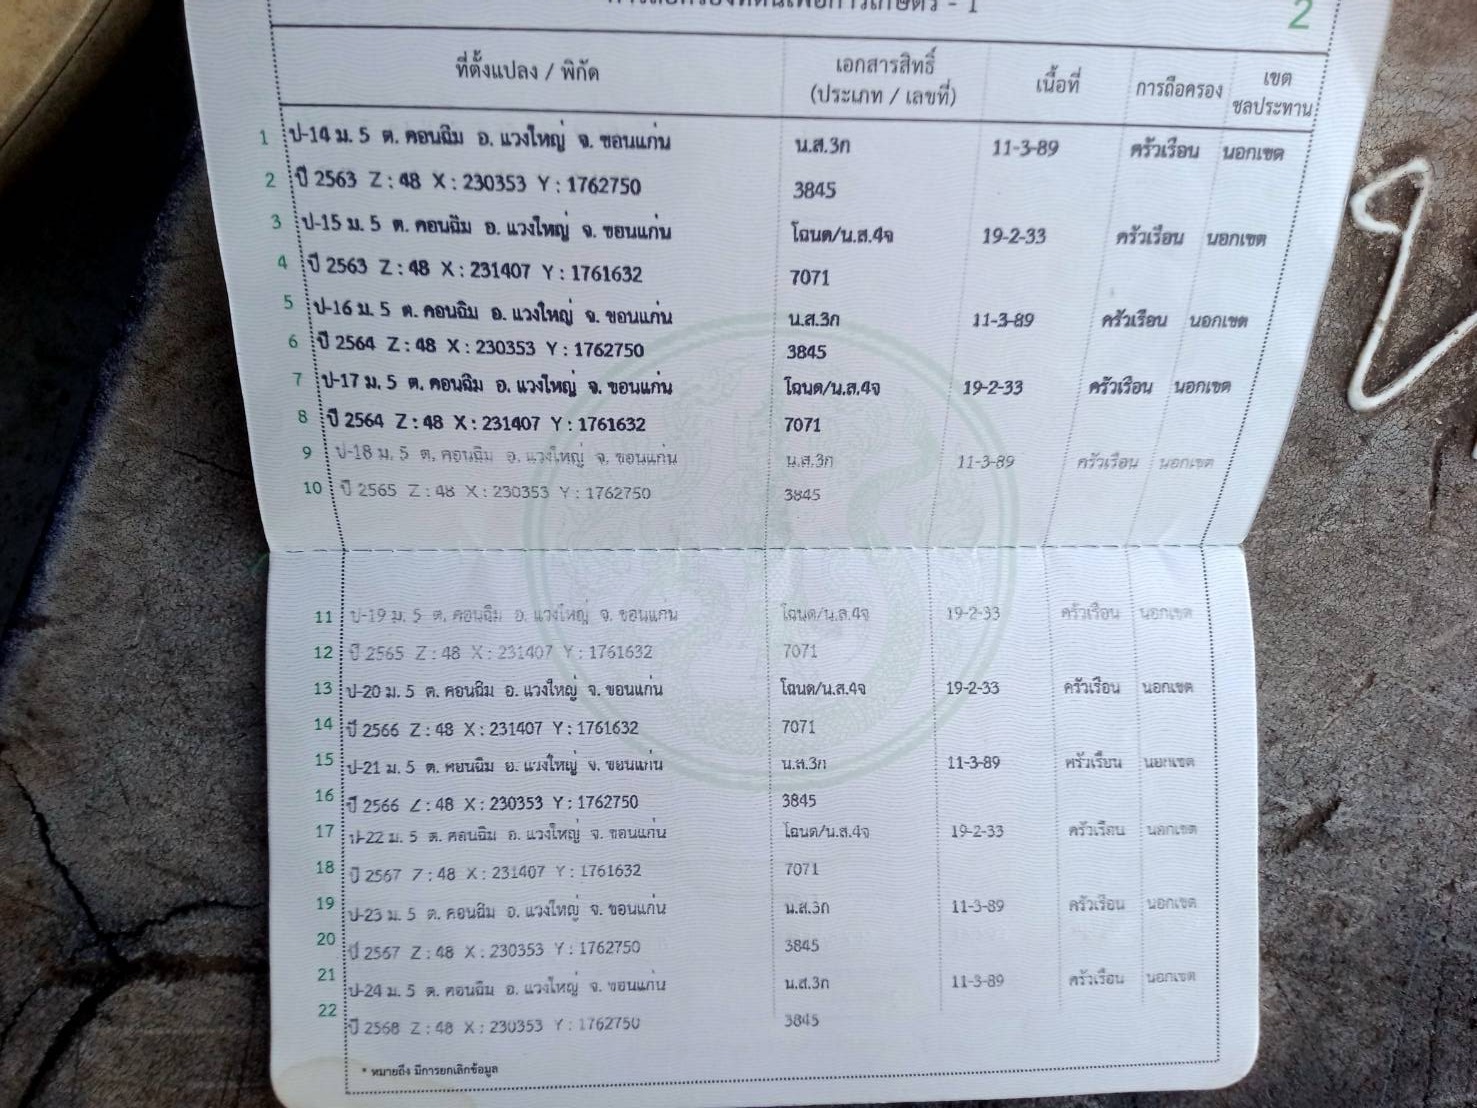 การถือครองที่ดินเพื่อการเกษตร - 1 2
ที่ตั้งแปลง / พิกัด เอกสารสิทธิ์ (ประเภท / เลขที่) เนื้อที่ การถือครอง เขตชลประทาน
1 ป-14 ม. 5 ต. คอนฉิม อ. แวงใหญ่ จ. ขอนแก่น น.ส.3ก 11-3-89 ครัวเรือน นอกเขต
2 ปี 2563 Z : 48 X : 230353 Y : 1762750 3845
3 ป-15 ม. 5 ต. คอนฉิม อ. แวงใหญ่ จ. ขอนแก่น โฉนด/น.ส.4จ 19-2-33 ครัวเรือน นอกเขต
4 ปี 2563 Z : 48 X : 231407 Y : 1761632 7071
5 ป-16 ม. 5 ต. คอนฉิม อ. แวงใหญ่ จ. ขอนแก่น น.ส.3ก 11-3-89 ครัวเรือน นอกเขต
6 ปี 2564 Z : 48 X : 230353 Y : 1762750 3845
7 ป-17 ม. 5 ต. คอนฉิม อ. แวงใหญ่ จ. ขอนแก่น โฉนด/น.ส.4จ 19-2-33 ครัวเรือน นอกเขต
8 ปี 2564 Z : 48 X : 231407 Y : 1761632 7071
9 ป-18 ม. 5 ต. คอนฉิม อ. แวงใหญ่ จ. ขอนแก่น น.ส.3ก 11-3-89 ครัวเรือน นอกเขต
10 ปี 2565 Z : 48 X : 230353 Y : 1762750 3845
11 ป-19 ม. 5 ต. คอนฉิม อ. แวงใหญ่ จ. ขอนแก่น โฉนด/น.ส.4จ 19-2-33 ครัวเรือน นอกเขต
12 ปี 2565 Z : 48 X : 231407 Y : 1761632 7071
13 ป-20 ม. 5 ต. คอนฉิม อ. แวงใหญ่ จ. ขอนแก่น โฉนด/น.ส.4จ 19-2-33 ครัวเรือน นอกเขต
14 ปี 2566 Z : 48 X : 231407 Y : 1761632 7071
15 ป-21 ม. 5 ต. คอนฉิม อ. แวงใหญ่ จ. ขอนแก่น น.ส.3ก 11-3-89 ครัวเรือน นอกเขต
16 ปี 2566 Z : 48 X : 230353 Y : 1762750 3845
17 ป-22 ม. 5 ต. คอนฉิม อ. แวงใหญ่ จ. ขอนแก่น โฉนด/น.ส.4จ 19-2-33 ครัวเรือน นอกเขต
18 ปี 2567 Z : 48 X : 231407 Y : 1761632 7071
19 ป-23 ม. 5 ต. คอนฉิม อ. แวงใหญ่ จ. ขอนแก่น น.ส.3ก 11-3-89 ครัวเรือน นอกเขต
20 ปี 2567 Z : 48 X : 230353 Y : 1762750 3845
21 ป-24 ม. 5 ต. คอนฉิม อ. แวงใหญ่ จ. ขอนแก่น น.ส.3ก 11-3-89 ครัวเรือน นอกเขต
22 ปี 2568 Z : 48 X : 230353 Y : 1762750 3845
* หมายถึง มีการยกเลิกข้อมูล